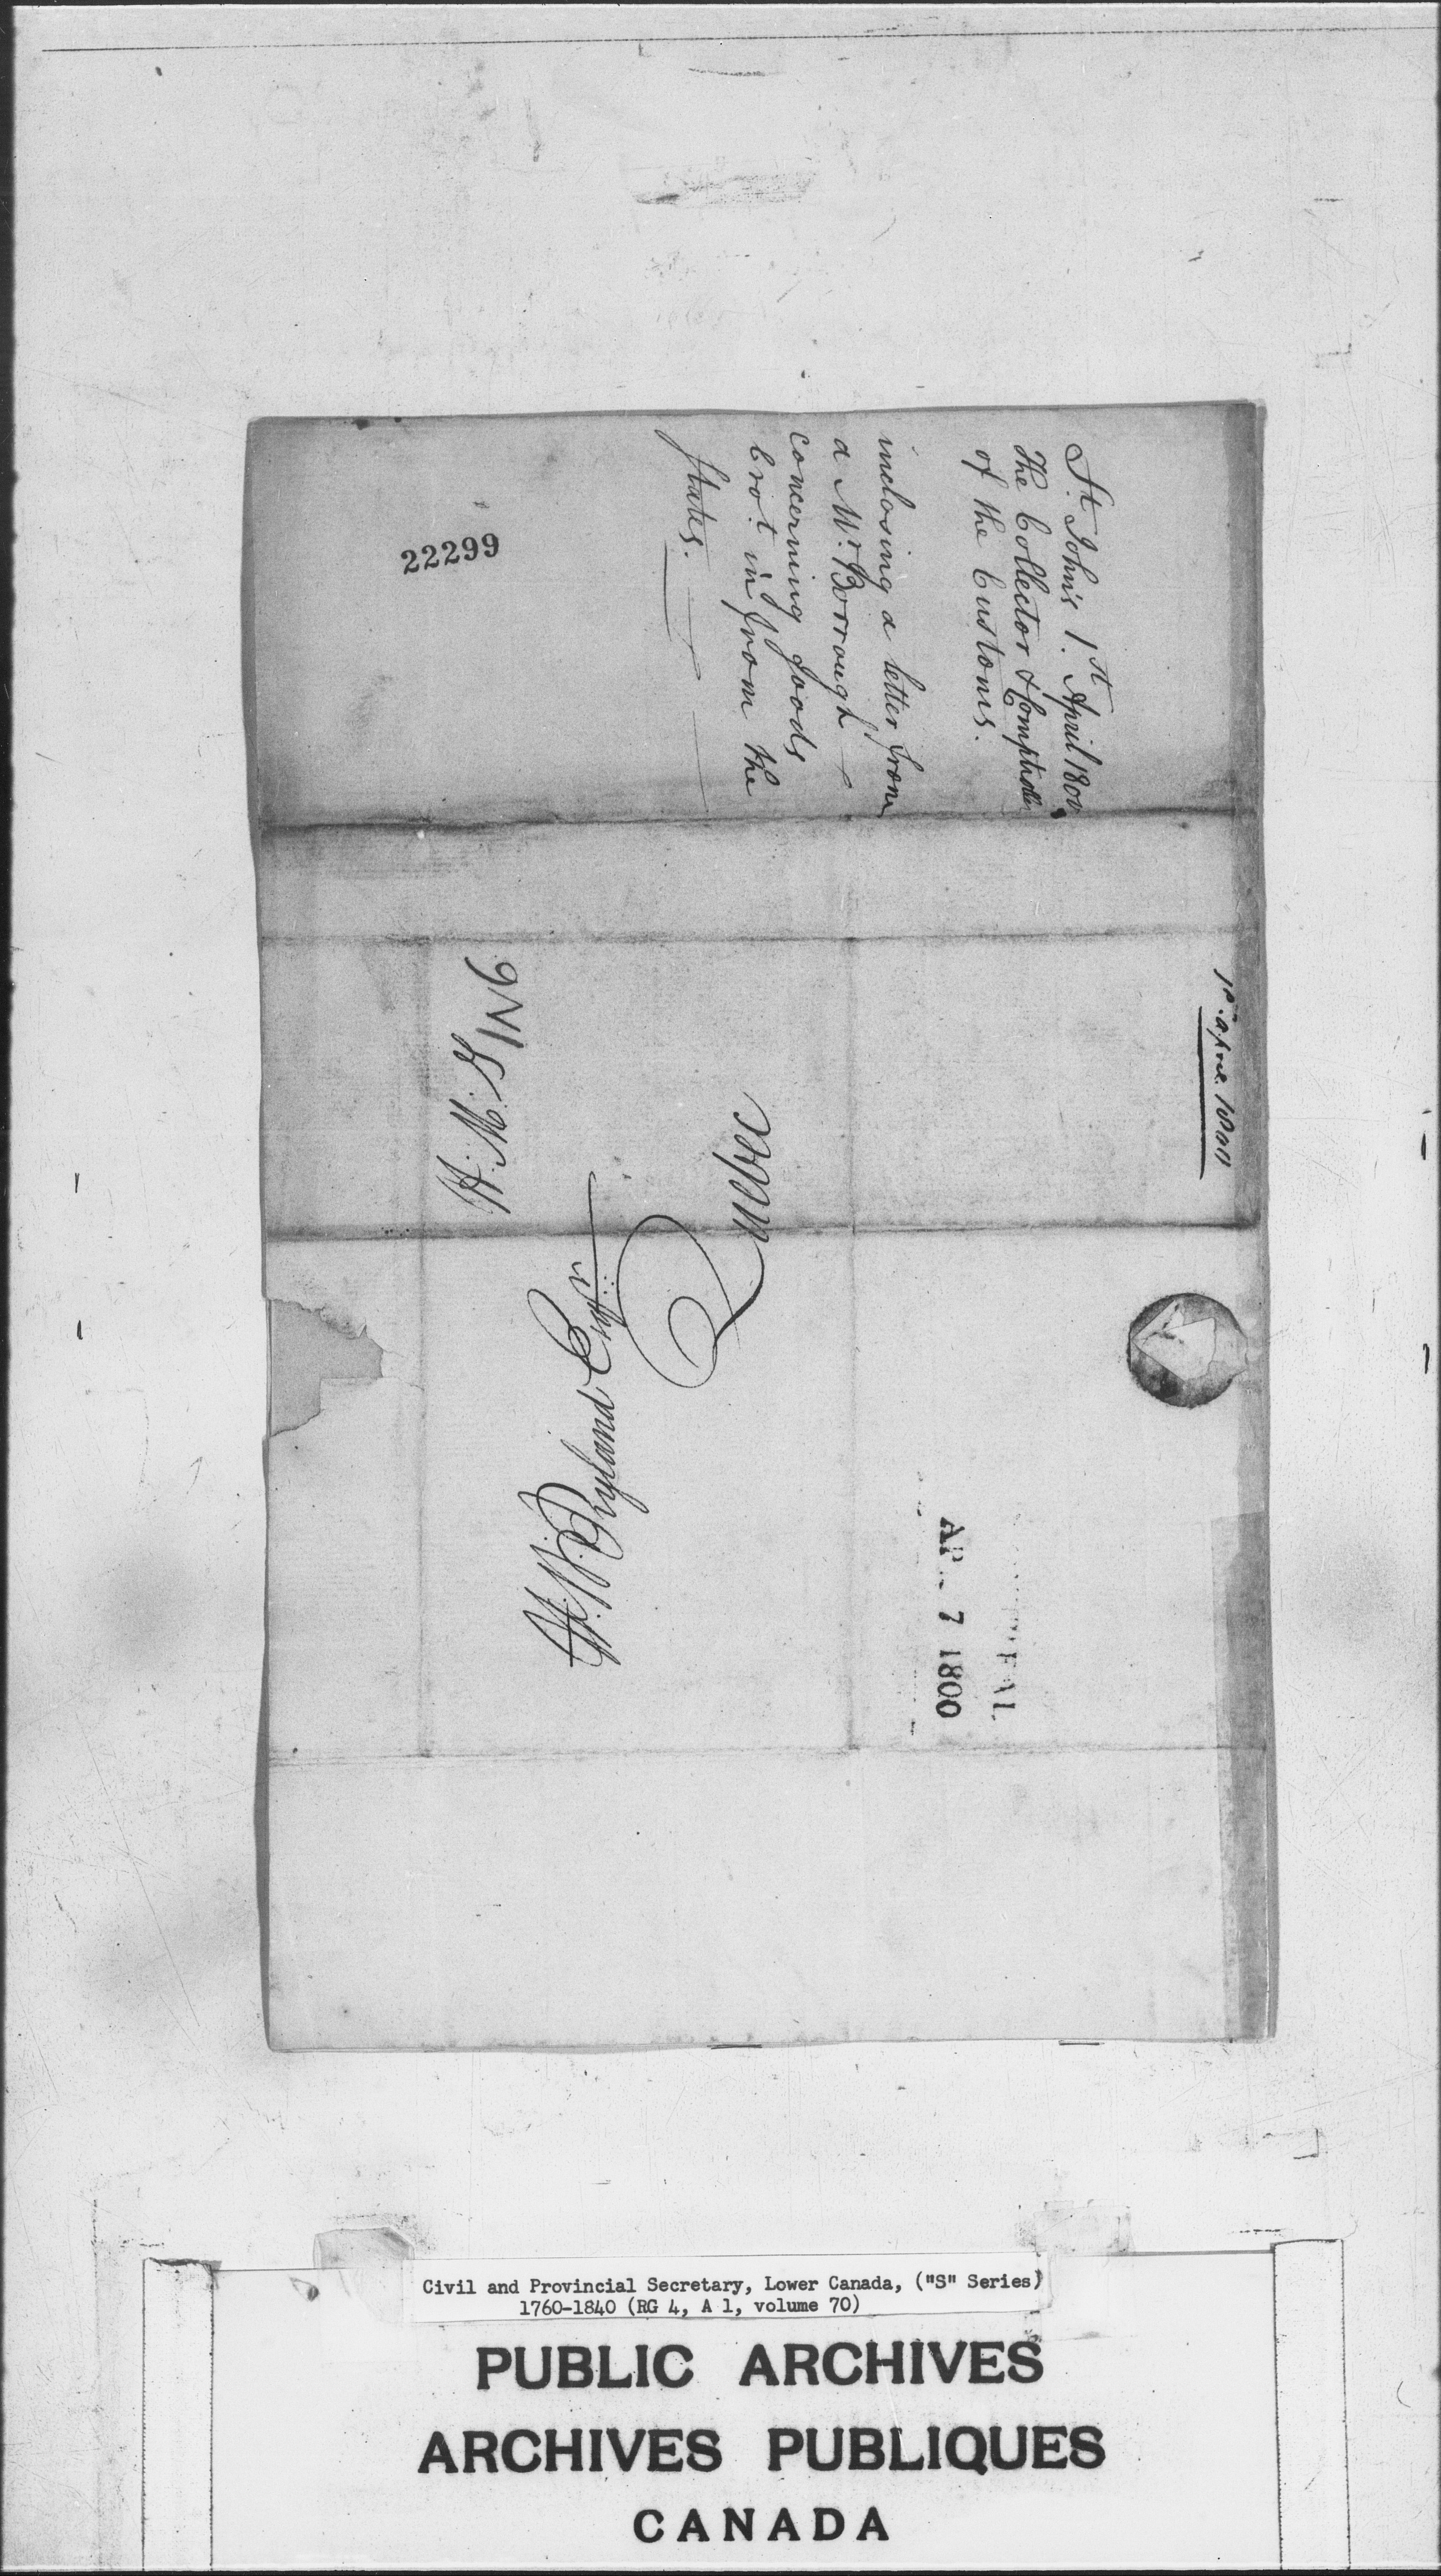 St. John's 1st. April 1800
The Collector & Comptroller
of the Customs.
inclosing a letter from
a Mr. Borrough
concerning goods
brot. in from the
States.
22299
1st. april 1800
H. W. Ryland Esqr.
&c &c
AP 7 1800
Civil and Provincial Secretary, Lower Canada, ("S" Series)
1760-1840 (RG 4, A 1, volume 70)
PUBLIC ARCHIVES
ARCHIVES PUBLIQUES
CANADA